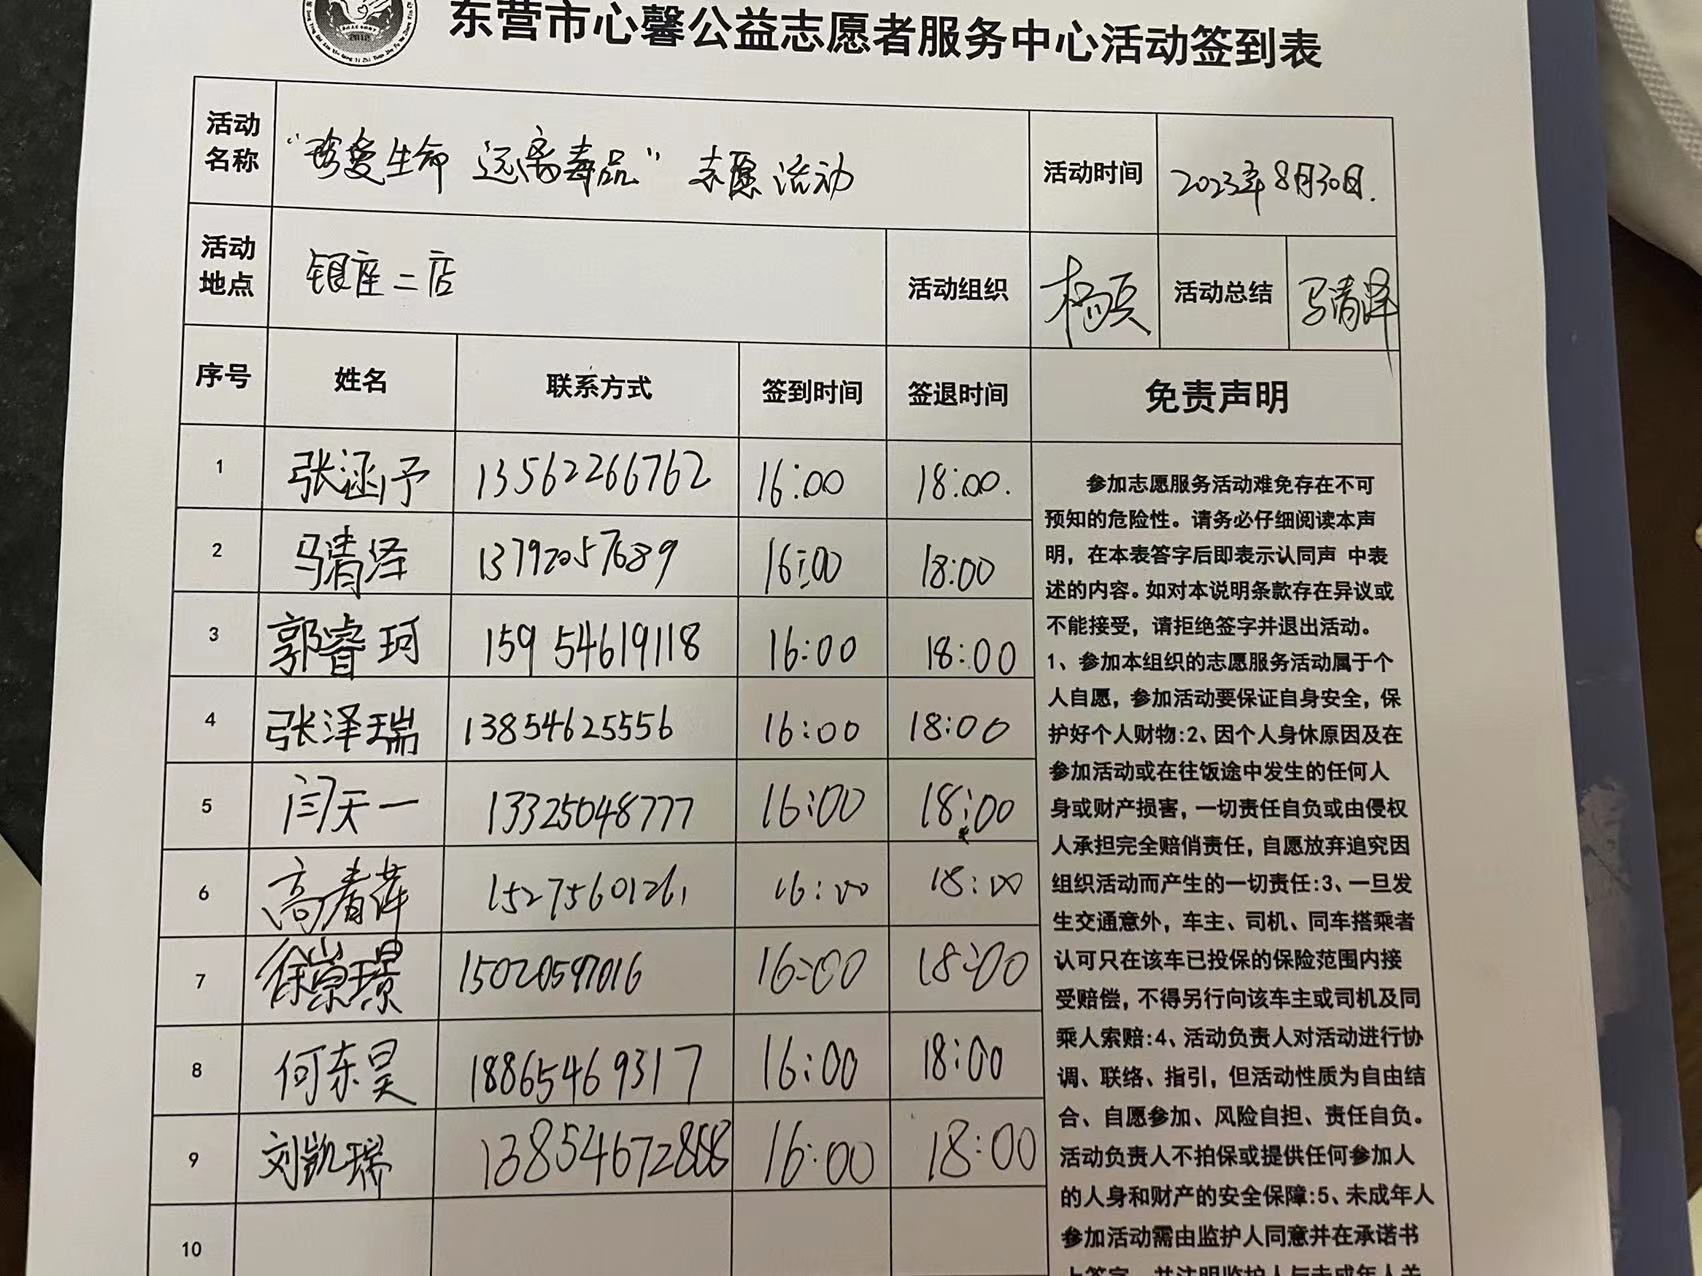 东营市心馨公益志愿者服务中心活动签到表
活动名称 “珍爱生命 远离毒品”志愿活动 活动时间 2023年8月30日.
活动地点 银座二店 活动组织 活动总结 马清泽
序号 姓名 联系方式 签到时间 签退时间 免责声明
1 张涵予 13562266762 16:00 18:00.
2 马清泽 13792057689 16:00 18:00
3 郭睿珂 15954619118 16:00 18:00
4 张泽瑞 13854625556 16:00 18:00
5 闫天一 13325048777 16:00 18:00
6 高青萍 15275601261 16:00 18:00
7 徐崇璟 15020597016 16:00 18:00
8 何东昊 18865469317 16:00 18:00
9 刘凯瑞 16:00 18:00
10
参加志愿服务活动难免存在不可
预知的危险性。请务必仔细阅读本声
明，在本表答字后即表示认同声 中表
述的内容。如对本说明条款存在异议或
不能接受，请拒绝签字并退出活动。
1、参加本组织的志愿服务活动属于个
人自愿，参加活动要保证自身安全，保
护好个人财物:2、因个人身休原因及在
参加活动或在往饭途中发生的任何人
身或财产损害，一切责任自负或由侵权
人承担完全赔偿责任，自愿放弃追究因
组织活动而产生的一切责任:3、一旦发
生交通意外，车主、司机、同车搭乘者
认可只在该车已投保的保险范围内接
受赔偿，不得另行向该车主或司机及同
乘人索赔:4、活动负责人对活动进行协
调、联络、指引，但活动性质为自由结
合、自愿参加、风险自担、责任自负。
活动负责人不拍保或提供任何参加人
的人身和财产的安全保障:5、未成年人
参加活动需由监护人同意并在承诺书